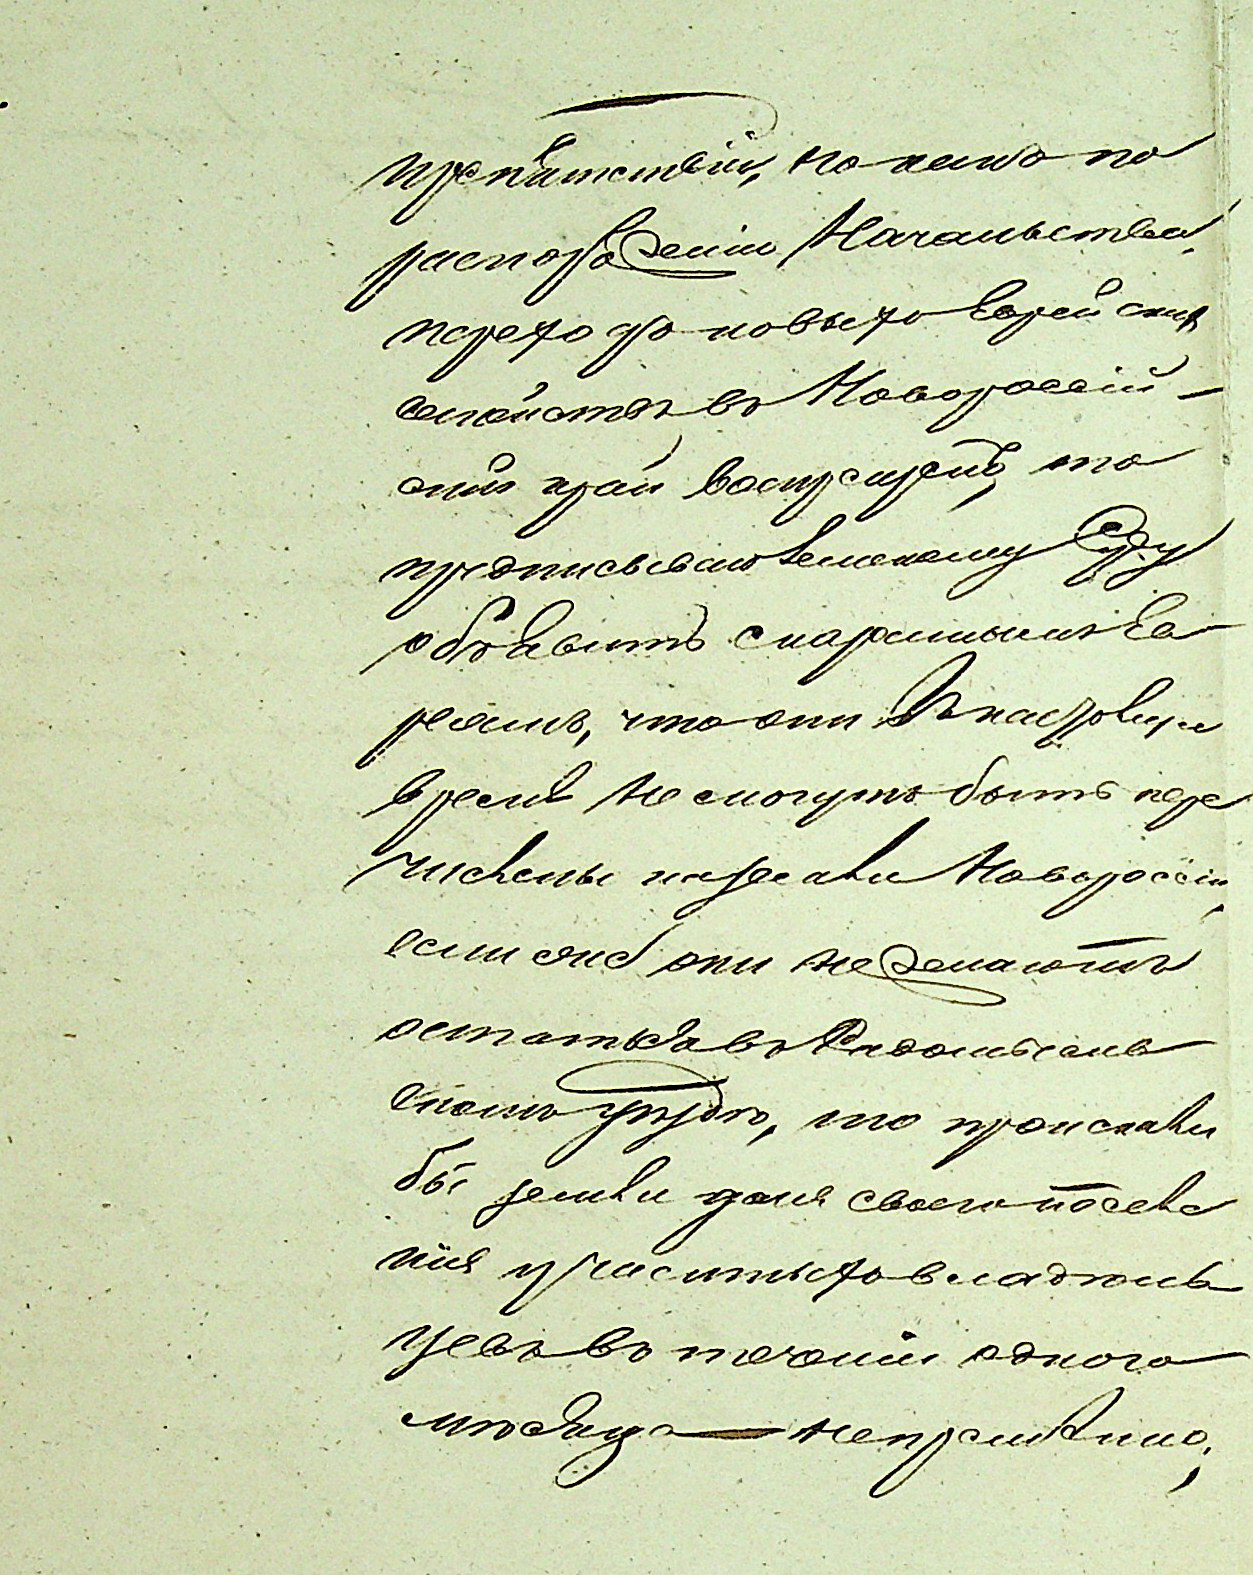 препятствій, но какъ по
распоряженію Начальства
переходъ новыхъ Еврейскихъ
семействъ въ Новороссій-
скій край воспрещенъ, то
предписываю Земскому Суду
объявить скареннымъ Ев-
реямъ, что они въ настоящее
время не могутъ быть пере
числены на земли Новороссіи,
если же они не желаютъ
остаться въ Радомысль
скомъ уездѣ, то пріискали
бы земли для своего поселе
нія у частныхъ владель
цевъ въ теченіи одного
месяца непременно,